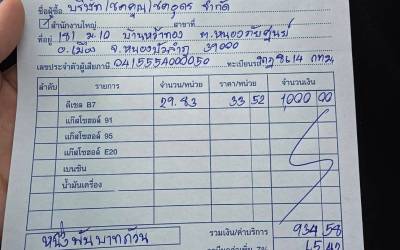 ชื่อผู้ซื้อ บริษัท โชคคูณโชคอุดร จำกัด
สำนักงานใหญ่ สาขาที่
ที่อยู่ 181 ม.10 บ้านหน้าทอง ต.หนองภัยศูนย์
อ.เมือง จ.หนองบัวลำภู 39000
เลขประจำตัวผู้เสียภาษี 0415554000050 ทะเบียนรถ 8614 กทม
ลำดับ รายการ จำนวน/หน่วย ราคา/หน่วย จำนวนเงิน
ดีเซล B7 29.83 33 52 1,000 00
แก๊สโซฮอล์ 91
แก๊สโซฮอล์ 95
แก๊สโซฮอล์ E20
เบนซิน
น้ำมันเครื่อง
หนึ่งพันบาทถ้วน รวมเงิน/ค่าบริการ 934 58
7% 65 42